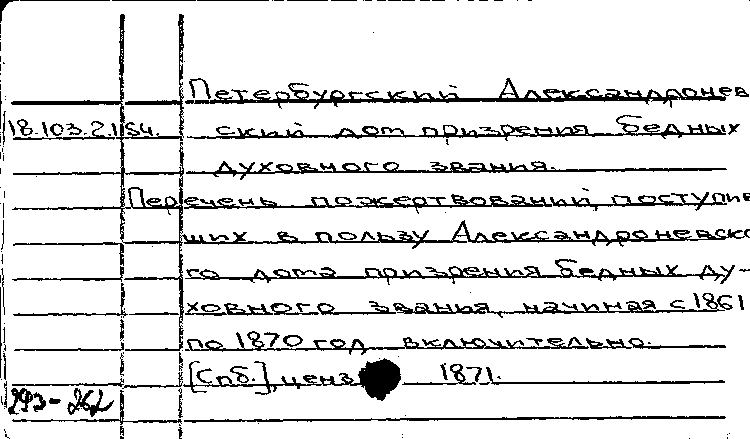 Петербургский Александронев
18.103.2.154. ский дом призрения бедных
духовного звания.
Перечень пожертвований, поступив
ших в пользу Александроневско
го дома призрения бедных ду-
ховного звания, начиная с 1861
по 1870 год включительно.
[Спб.], ценз. 1871.
293-262